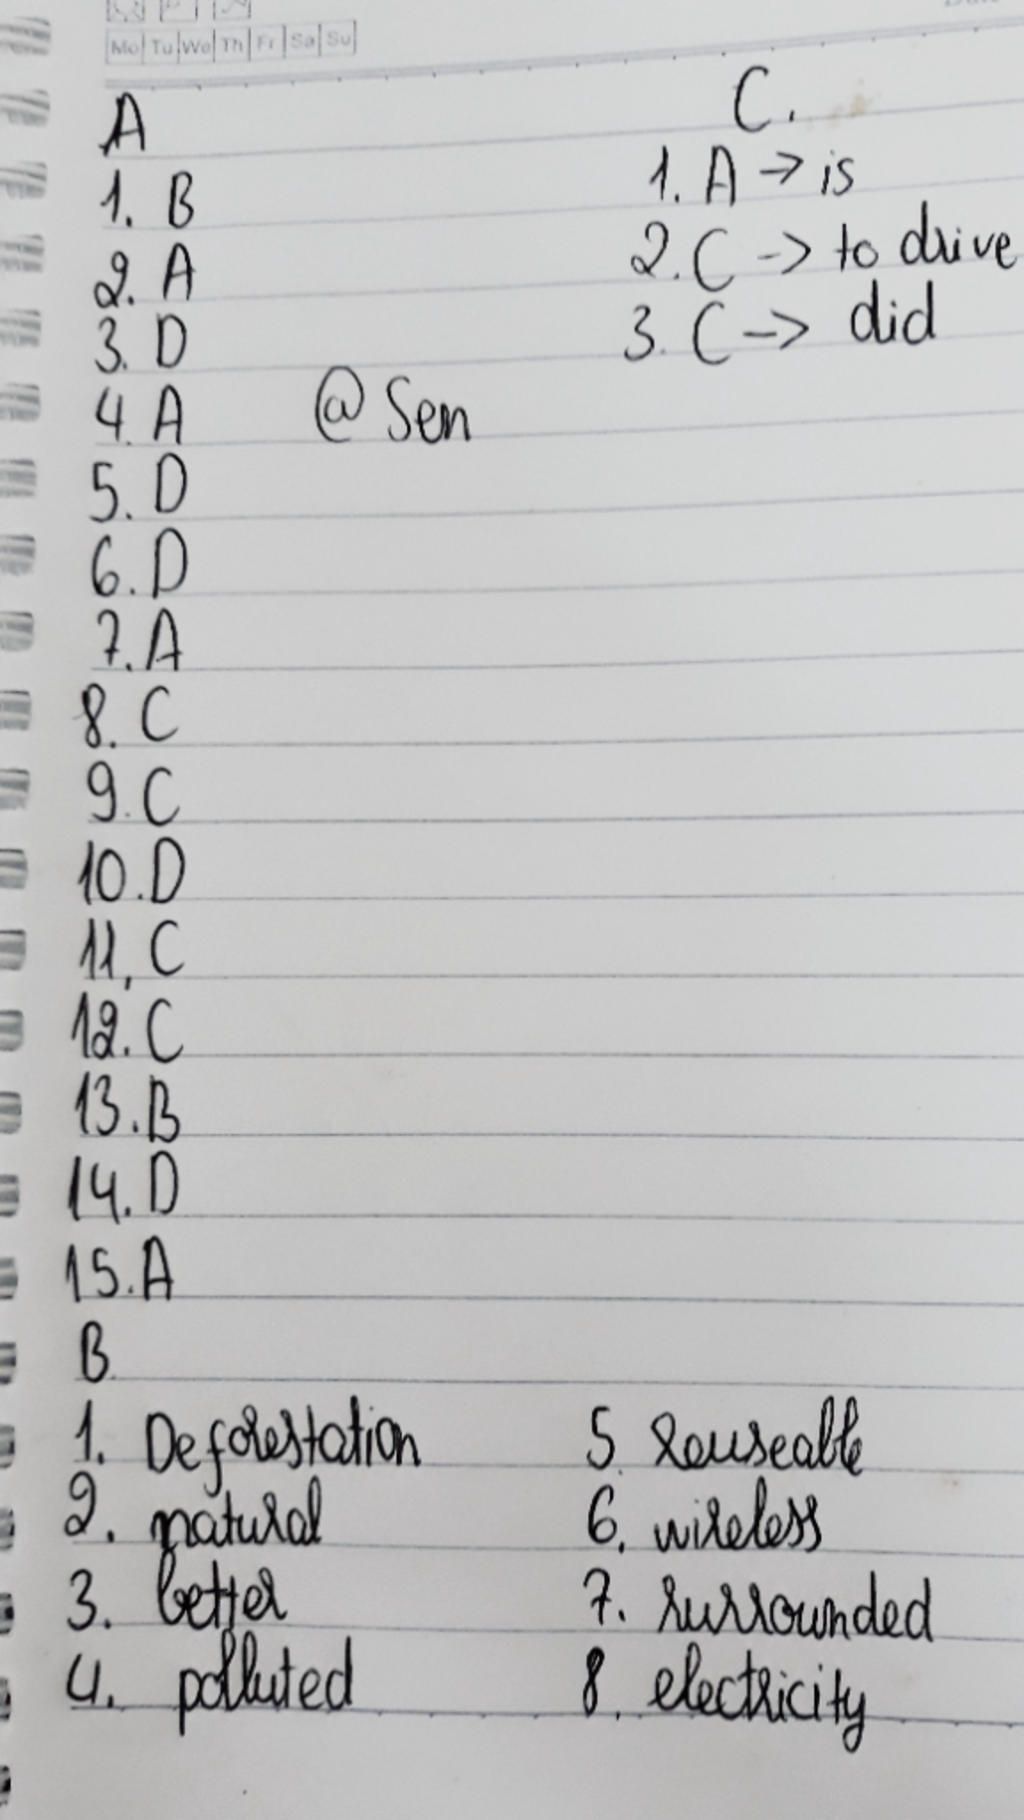 Mo Tu We Th Fr Sa Su
A
1. B
2. A
3. D
4. A
@ Sen
5. D
6. D
7. A
8. C
9. C
10. D
11, C
12. C
13. B
14. D
15. A
B
1. Deforestation
2. natural
3. better
4. polluted
5 Reuseable
6. wireless
7. surrounded
8. electricity
C.
1. A → is
2. C -> to drive
3. C -> did